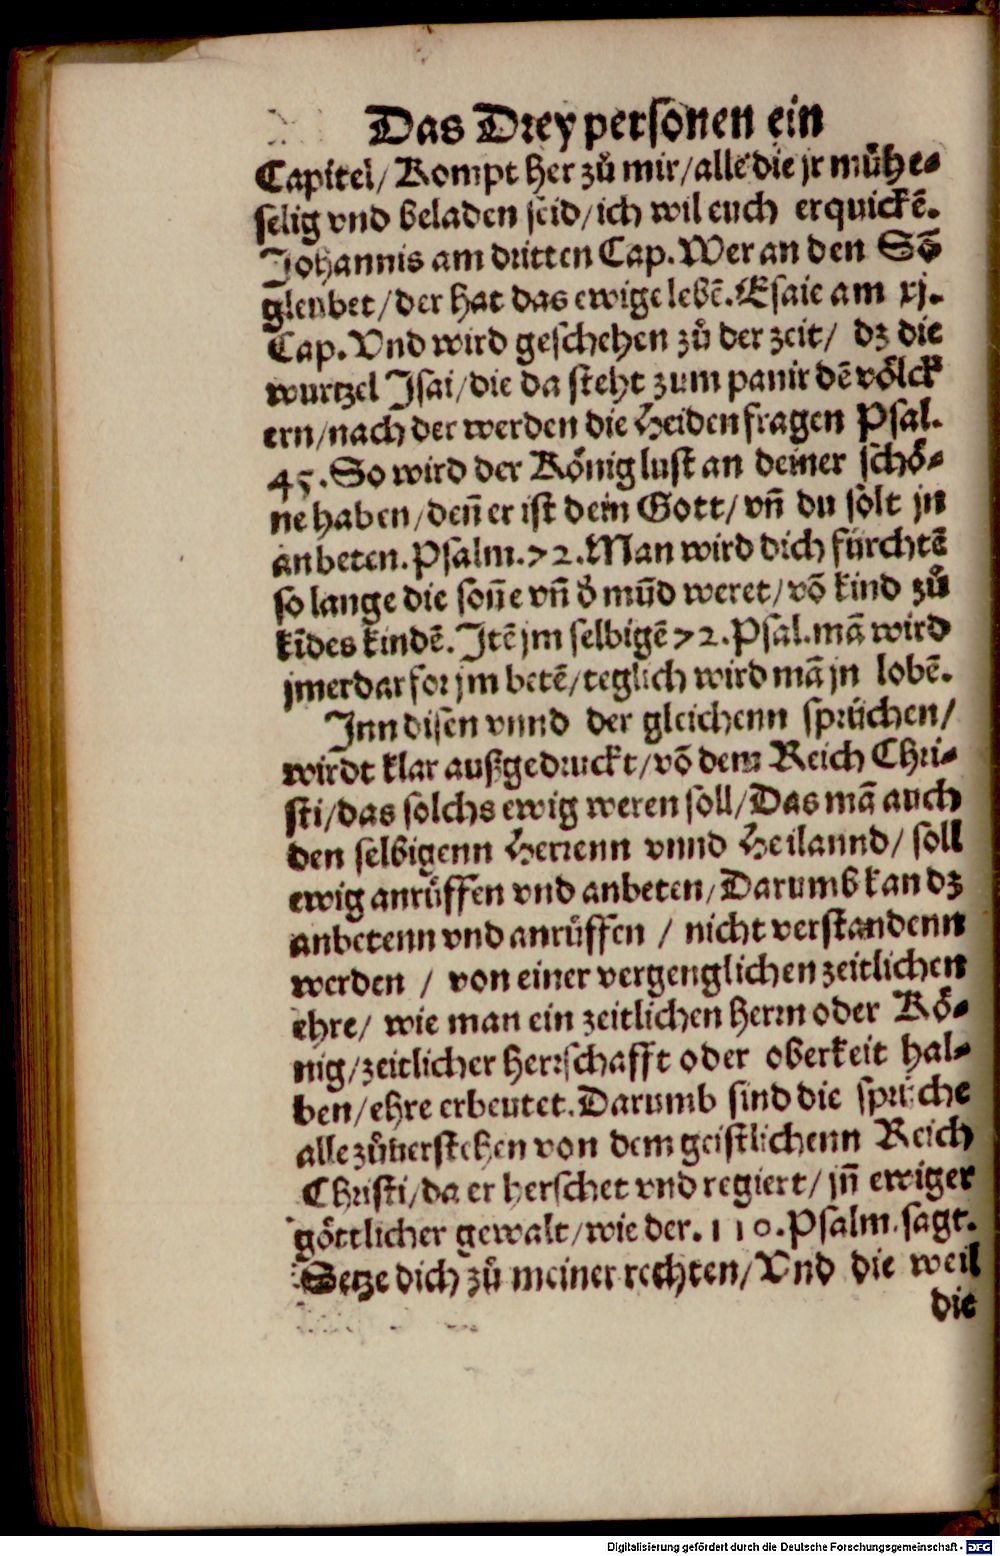 Das Drey personen ein
Capitel/ Kompt her zů mir/ alle die jr mühe-
selig vnd beladen seid/ ich wil euch erquickē.
Johannis am dritten Cap. Wer an den Sō
gleubet/ der hat das ewige lebē. Esaie am xj.
Cap. Vnd wird geschehen zů der zeit/ dz die
wurtzel Jsai/ die da steht zum panir dē völck
ern/ nach der werden die Heiden fragen Psal.
45. So wird der König lust an deiner schö-
ne haben/ deñ er ist dein Gott/ vñ du solt jn
anbeten. Psalm. 72. Man wird dich fürchtē
so lange die soñe vñ d̕ mūd weret/ vō kind zů
kīdes kindē. Jtē jm selbigē 72. Psal. mā wird
jmerdar for jm betē/ teglich wird mā jn lobē.
Jnn disen vnnd der gleichenn sprüchen/
wirdt klar außgedruckt/ vō dem Reich Chri-
sti/ das solchs ewig weren soll/ Das mā auch
den selbigenn Herrenn vnnd Heilannd/ soll
ewig anrůffen vnd anbeten/ Darumb kan dz
anbetenn vnd anrůffen / nicht verstandenn
werden / von einer vergenglichen zeitlichen
ehre/ wie man ein zeitlichen herrn oder Kö-
nig/ zeitlicher herrschafft oder oberkeit hal-
ben/ ehre erbeutet. Darumb sind die sprüche
alle zůuerstehen von dem geistlichenn Reich
Christi/ da er herschet vnd regiert/ jñ ewiger
göttlicher gewalt/ wie der. 110. Psalm. sagt.
Setze dich zů meiner rechten/ Vnd die weil
die
Digitalisierung gefördert durch die Deutsche Forschungsgemeinschaft - DFG